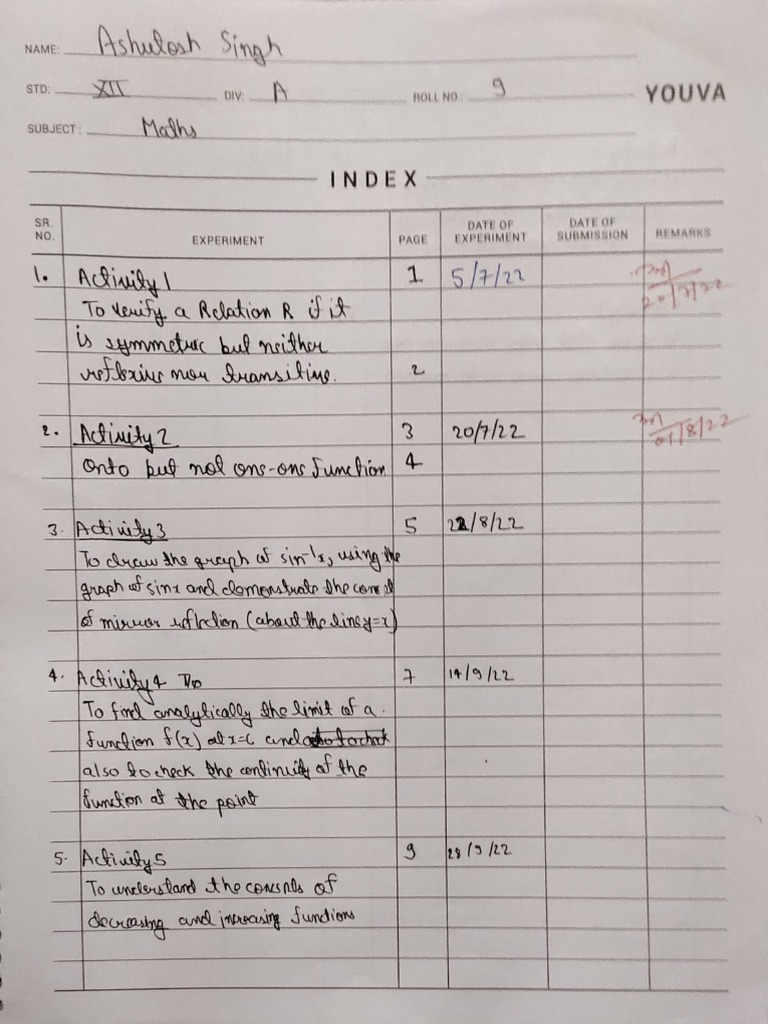 NAME: Ashutosh Singh
STD: XII DIV: A ROLL NO.: 9 YOUVA
SUBJECT: Maths
INDEX
SR. NO. EXPERIMENT PAGE DATE OF EXPERIMENT DATE OF SUBMISSION REMARKS
1. Activity 1 1 5/7/22
To verify a Relation R if it 20/7/22
is symmetric but neither
reflexive nor transitive. 2
2. Activity 2 3 20/7/22 01/8/22
Onto but not one-one function 4
3. Activity 3 5 22/8/22
To draw the graph of sin⁻¹x, using the
graph of sinx and demonstrate the
of mirror reflection (about the line y=x)
4. Activity 4 To 7 14/9/22
To find analytically the limit of a
function f(x) at x=c and
also to check the continuity of the
function at the point
5. Activity 5 9 28/9/22
To understand the concepts of
decreasing and increasing functions